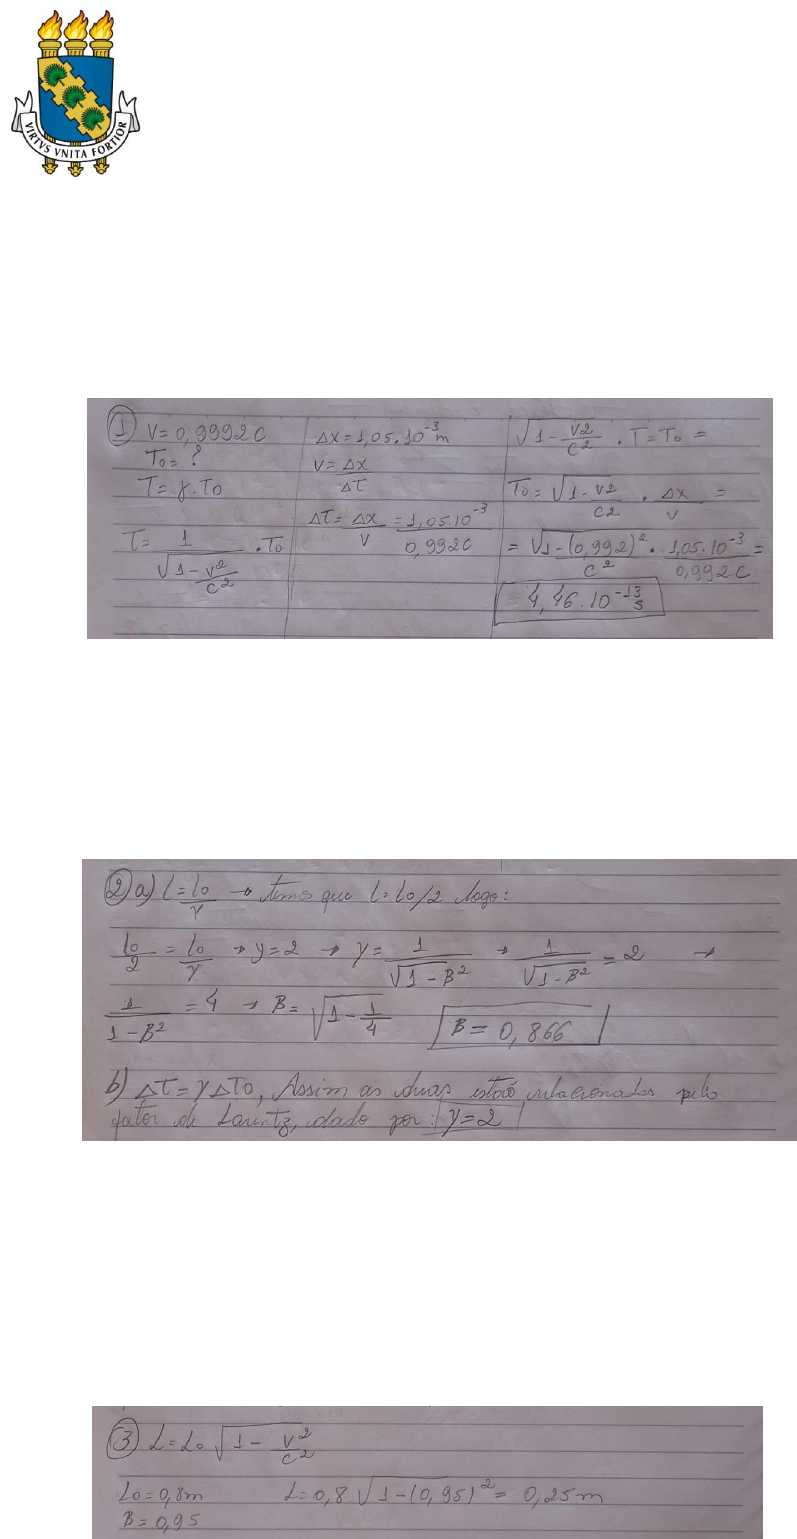 VIRTVS VNITA FORTIOR
1 V = 0,9992C
T₀ = ?
T = γ.T₀
T = 1/√(1 - v²/c²) . T₀
Δx = 1,05.10⁻³ m
V = Δx/ΔT
ΔT = Δx/V = 1,05.10⁻³/0,992C
√(1 - V2/C2) . T = T₀ =
T₀ = √(1 - V2/C2) . Δx/V =
= √(1 - (0,992)²/C²) . 1,05.10⁻³/0,992C =
4,46.10⁻¹³ s
2 a) l = l₀/γ → temos que l = l₀/2 logo:
l₀/2 = l₀/γ → γ = 2 → γ = 1/√(1 - B²) → 1/√(1 - B²) = 2 →
1/(1 - B²) = 4 → B = √(1 - 1/4) B = 0,866
b) ΔT = γΔT₀, Assim as duas estão relacionadas pelo
fator de Lorentz, dado por: γ = 2
3 L = L₀ √(1 - V²/C²)
L₀ = 0,8m L = 0,8 √(1 - (0,95)²) = 0,25 m
B = 0,95